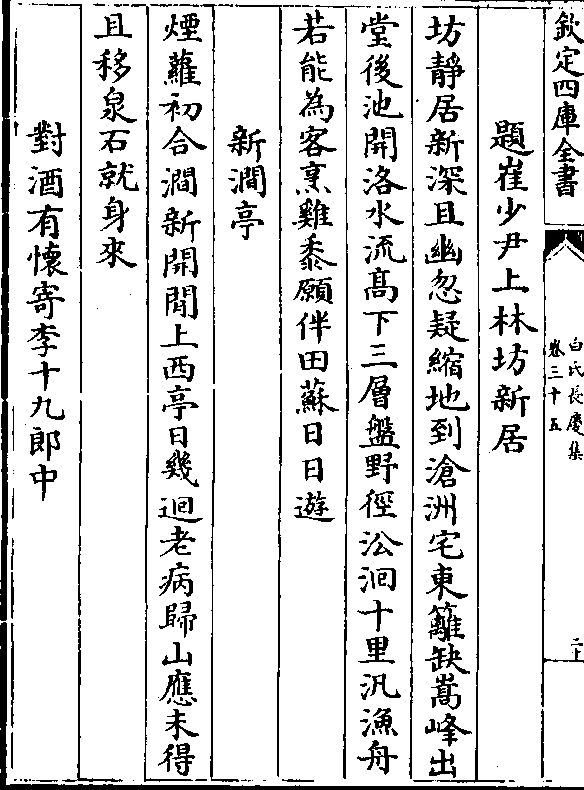 欽定四庫全書
白氏長慶集
卷三十五
二十
題崔少尹上林坊新居
坊静居新深且幽忽疑縮地到滄洲宅東籬缺嵩峰出
堂後池開洛水流髙下三層盤野徑㳂洄十里汎漁舟
若能為客烹雞黍願伴田蘇日日遊
新澗亭
煙蘿初合澗新開閒上西亭日幾迴老病歸山應未得
且移泉石就身來
對酒有懷寄李十九郎中